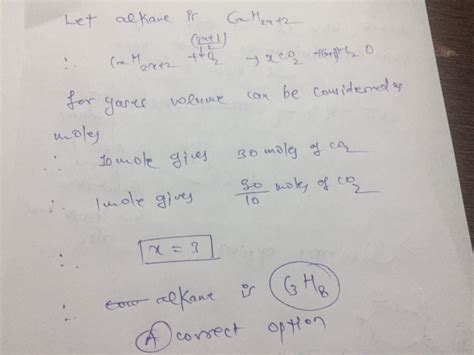 Let alkane is CxH2x+2
∴ CxH2x+2 + O2 → xCO2 + H2O
for gases volume can be considered as
moles
∴ 10 mole gives 30 moles of CO2
∴ 1 mole gives 30/10 moles of CO2
x = 3
∴ alkane is C3H8
A correct option